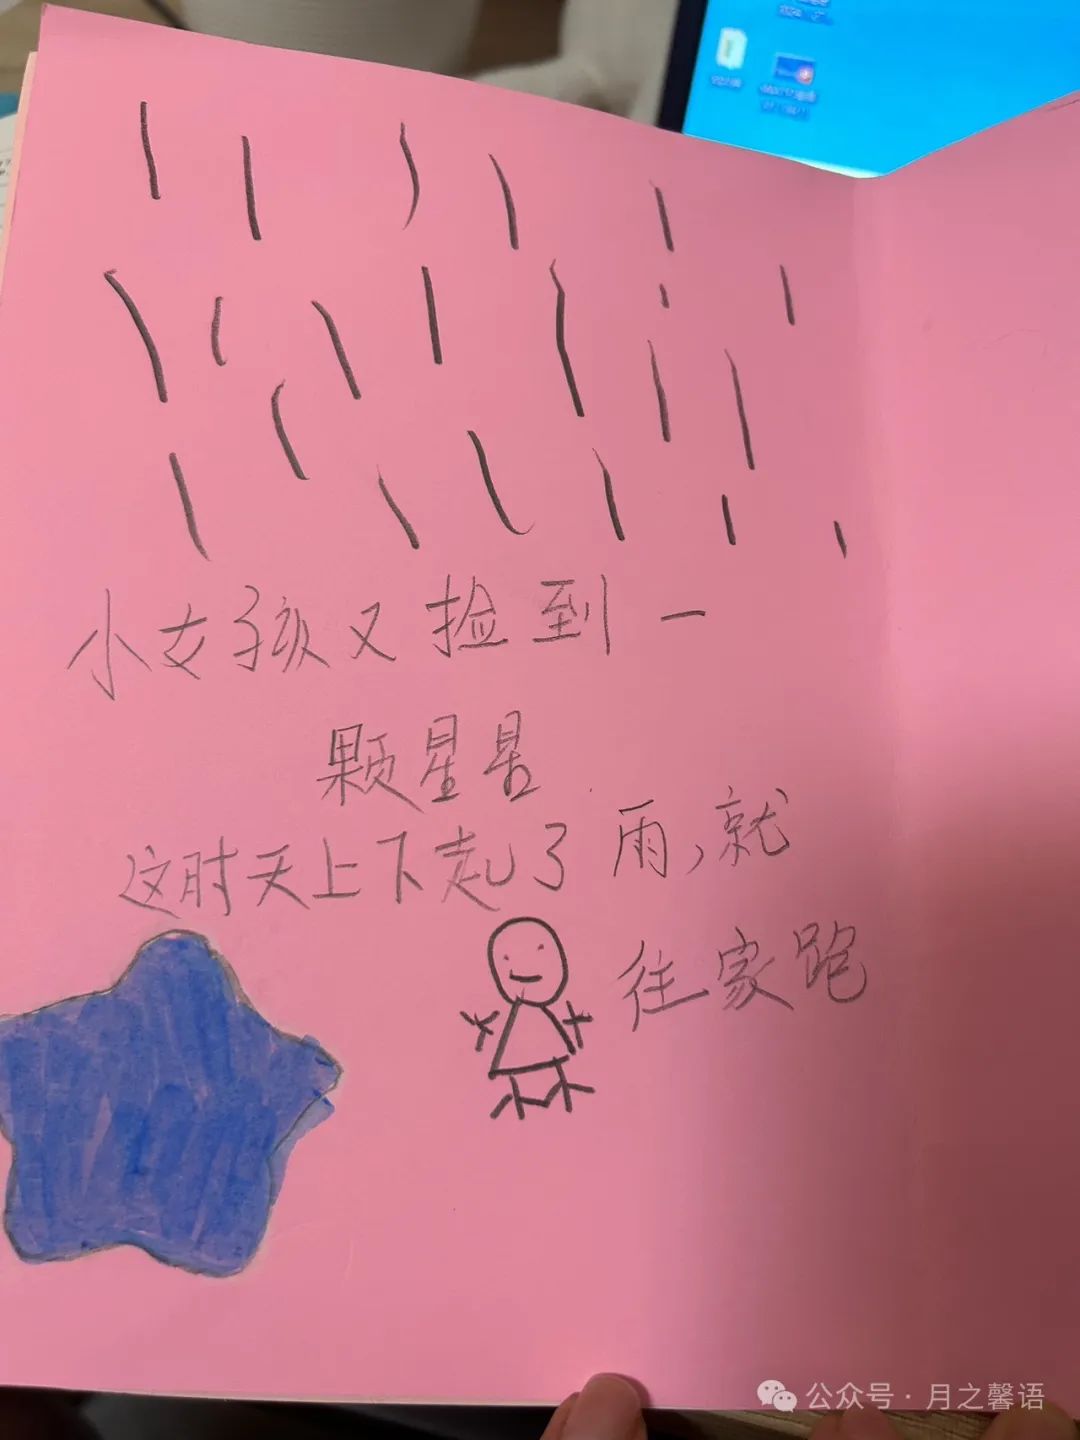 小女孩又捡到一
颗星星
这时天上下起了雨,就
往家跑
公众号·月之馨语